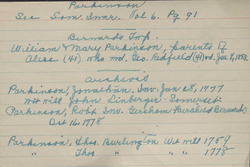 Parkinson
See Som. Invr. Vol 6. Pg. 91
Bernards Twp.
William & Mary Parkinson, parents of
Alice (41) who md. Geo. Redfield (41) Jan 7, 1852
Archives
Parkinson, Jonathan, Inv. Jan 28, 1777
Will John Sinberger Somerset
Parkinson, Robt Inv. Gershom
Oct 16, 1778
Parkinson, Thos Burlington Wt will 1759
Thos " " " 1778